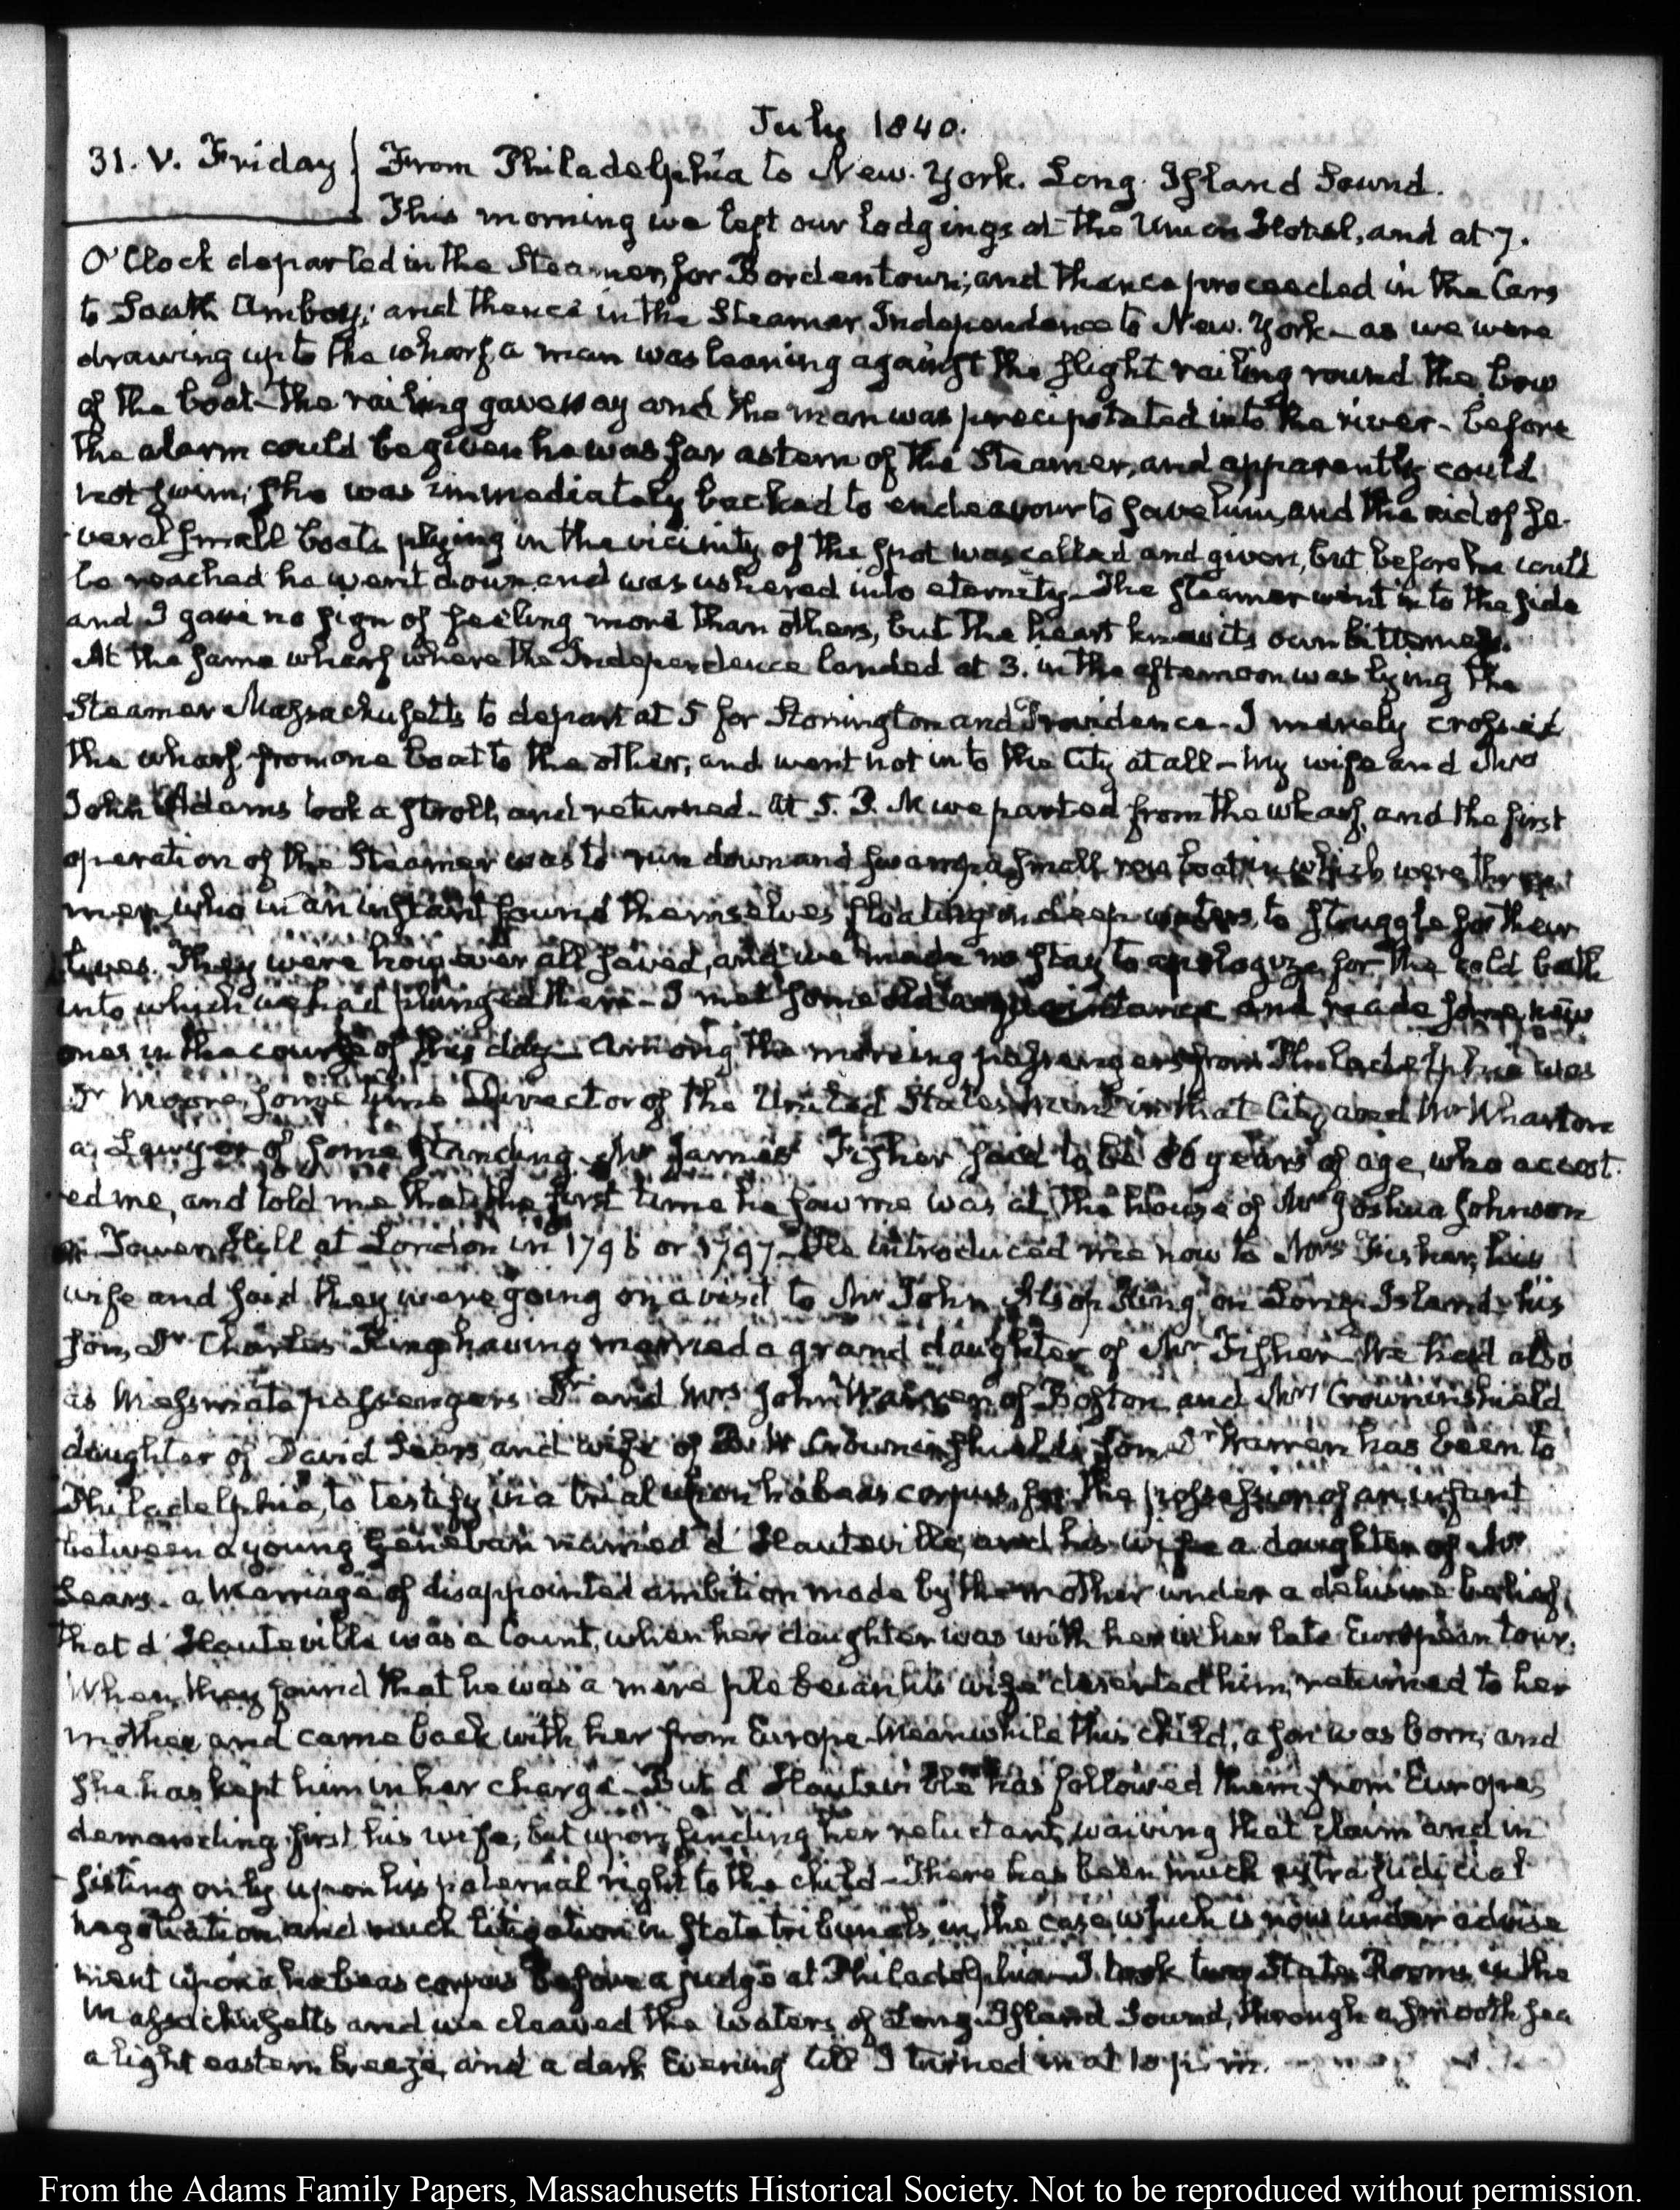 July 1840.
31. V. Friday } From Philadelphia to New-York. Long-Island Sound.
This morning we left our lodgings at the Union Hotel, and at 7.
O'Clock departed in the Steamer, for Bordentown; and thence proceeded in the Cars
to South Amboy; and thence in the Steamer Independence to New-York – as we were
drawing up to the wharf, a man was leaning against the slight railing round the bow
of the boat – the railing gave way and the man was precipitated into the river – before
the alarm could be given he was far astern of the Steamer, and apparently could
not swim; she was immediately backed to endeavour to save him, and the aid of se-
veral small boats plying in the vicinity of the spot was called and given, but before he could
be reached he went down and was ushered into eternity – The steamer went in to the side
and I gave no sign of feeling more than others, but the heart knew its own bitterness.
At the same wharf where the Independence landed at 3. in the afternoon was lying the
Steamer Massachusetts to depart at 5 for Stonington and Providence – I merely crossed
the wharf from one boat to the other, and went not into the City at all – My wife and Mrs
John Adams took a stroll, and returned. At 5. P. M we parted from the wharf, and the first
operation of the Steamer was to run down and swamp a small row boat in which were three
men, who in an instant found themselves floating in deep waters, to struggle for their
lives. They were however all saved, and we made no stay to apologize for the cold bath
into which we had plunged them – I met some old acquaintance and made some new
ones in the course of this day – Among the morning passengers from Philadelphia was
Dr Moore, some time Director of the United States mint in that City, and Mr Wharton
a Lawyer of some standing. Mr James Fisher said to be 86 years of age, who accost-
ed me, and told me that the first time he saw me was at the house of Mr Joshua Johnson
on Tower Hill at London in 1796 or 1797. He introduced me now to Mrs Fisher, his
wife and said they were going on a visit to Mr John Alsop King on Long-Island – his
son, Dr Charles King having married a grand daughter of Mr Fisher – We had also
as Messmate passengers Dr and Mrs John Warren of Boston, and Mrs Crowninshield
daughter of David Sears, and wife of B. W. Crowninshield's son. Dr Warren has been to
Philadelphia, to testify in a trial upon habeas corpus, for the possession of an infant
between a young Genevan named d'Hauteville, and his wife a daughter of Mr
Sears. a Marriage of disappointed ambition made by the mother under a delusive belief,
that d'Hauteville was a Count, when her daughter was with her in her late European tour.
When they found that he was a mere plebeian, his wife deserted him, returned to her
mother, and came back with her from Europe – Meanwhile this child, a son was born; and
she has kept him in her charge – But d'Hauteville has followed them from Europe,
demanding first his wife, but upon finding her reluctant, waiving that claim and in
sisting only upon his paternal right to the child – There has been much extra judicial
negotiation, and much litigation in State tribunals, in the case, which is now under advise
ment upon a habeas corpus before a judge at Philadelphia – I took two State Rooms in the
Massachusetts and we cleaved the waters of Long-Island Sound, through a smooth sea
a light eastern breeze, and a dark Evening till I turned in at 10 p. m.
From the Adams Family Papers, Massachusetts Historical Society. Not to be reproduced without permission.